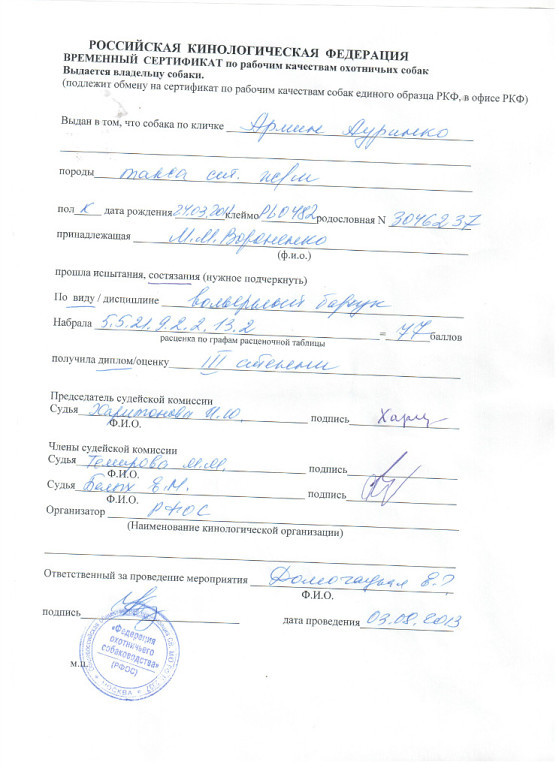 РОССИЙСКАЯ КИНОЛОГИЧЕСКАЯ ФЕДЕРАЦИЯ
ВРЕМЕННЫЙ СЕРТИФИКАТ по рабочим качествам охотничьих собак
Выдается владельцу собаки.
(подлежит обмену на сертификат по рабочим качествам собак единого образца РКФ, в офисе РКФ)
Выдан в том, что собака по кличке Армин Ауринко
породы такса ст.
пол К дата рождения 24.03.2011 клеймо РЬО482 родословная N 3046237
принадлежащая М.М. Вороненко
(ф.и.о.)
прошла испытания, состязания (нужное подчеркнуть)
По виду / дисциплине вольерный барсук
Набрала 5.5.21.9.2.2.13.2 = 77 баллов
расценка по графам расценочной таблицы
получила диплом/оценку III степени
Председатель судейской комиссии
Судья Харитонова И.Ю. подпись
Ф.И.О.
Члены судейской комиссии
Судья Темирова М.М. подпись
Ф.И.О.
Судья Белых Е.Н. подпись
Ф.И.О.
Организатор РФОС
(Наименование кинологической организации)
Ответственный за проведение мероприятия Домогацкая Е.
Ф.И.О.
подпись дата проведения 03.08.2013
м.п.
«Федерация
охотничьего
собаководства»
(РФОС)
МОСКВА